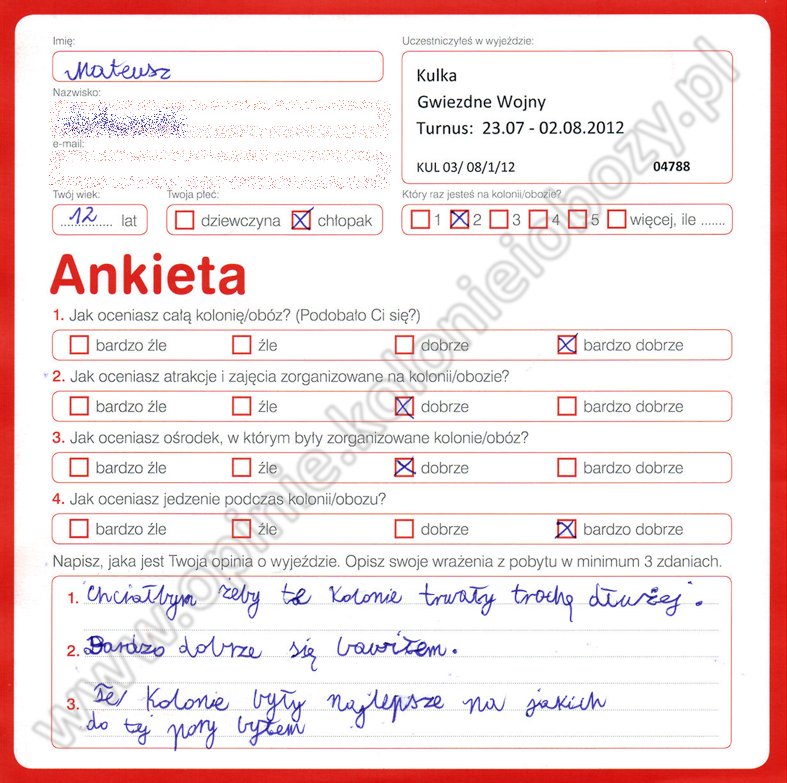 Imię:
Mateusz
Nazwisko:
e-mail:
Twój wiek:
12 lat
Twoja płeć:
dziewczyna chłopak
Uczestniczyłeś w wyjeździe:
Kulka
Gwiezdne Wojny
Turnus: 23.07 - 02.08.2012
KUL 03/ 08/1/12 04788
Który raz jesteś na kolonii/obozie?
1 2 3 4 5 więcej, ile .......
Ankieta
1. Jak oceniasz całą kolonię/obóz? (Podobało Ci się?)
bardzo źle źle dobrze bardzo dobrze
2. Jak oceniasz atrakcje i zajęcia zorganizowane na kolonii/obozie?
bardzo źle źle dobrze bardzo dobrze
3. Jak oceniasz ośrodek, w którym były zorganizowane kolonie/obóz?
bardzo źle źle dobrze bardzo dobrze
4. Jak oceniasz jedzenie podczas kolonii/obozu?
bardzo źle źle dobrze bardzo dobrze
Napisz, jaka jest Twoja opinia o wyjeździe. Opisz swoje wrażenia z pobytu w minimum 3 zdaniach.
1. Chciałbym żeby te kolonie trwały trochę dłużej.
2. Bardzo dobrze się bawiłem.
3. Te kolonie były najlepsze na jakich
do tej pory byłem
www.opinie.kolonieiobozy.pl